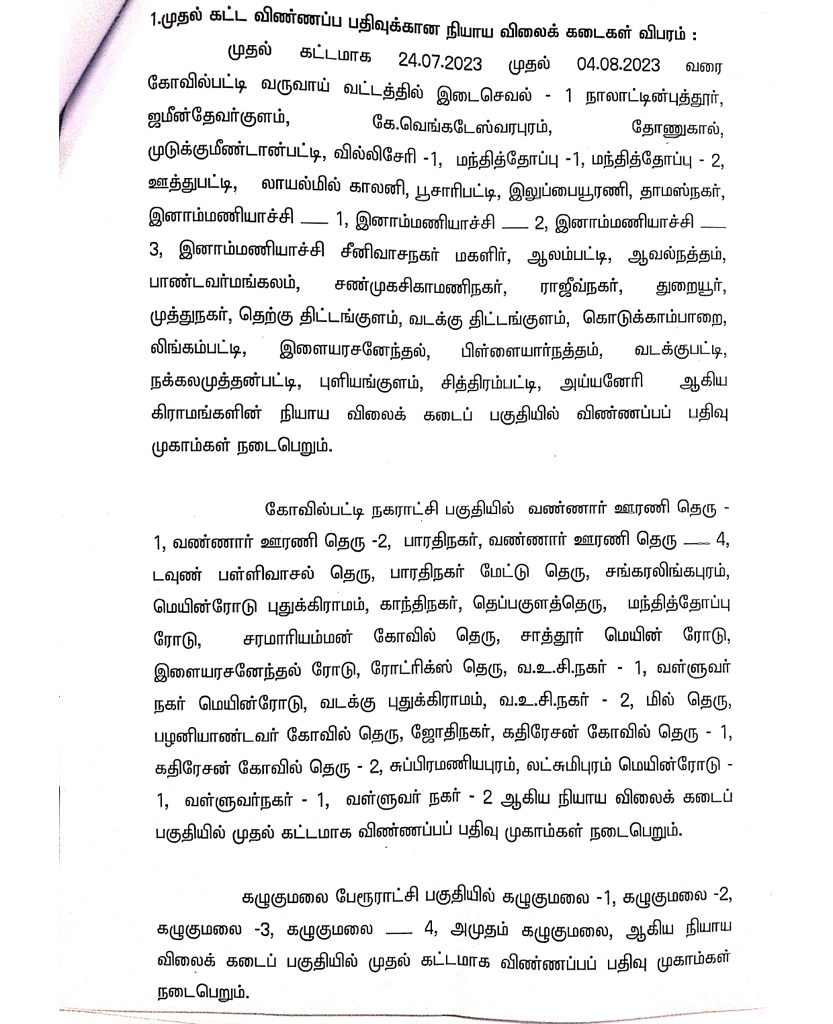 1.முதல் கட்ட விண்ணப்ப பதிவுக்கான நியாய விலைக் கடைகள் விபரம் :
முதல் கட்டமாக 24.07.2023 முதல் 04.08.2023 வரை
கோவில்பட்டி வருவாய் வட்டத்தில் இடைசெவல் - 1 நாலாட்டின்புத்தூர்,
ஜமீன்தேவர்குளம், கே.வெங்கடேஸ்வரபுரம், தோணுகால்,
முடுக்குமீண்டான்பட்டி, வில்லிசேரி -1, மந்தித்தோப்பு -1, மந்தித்தோப்பு - 2,
ஊத்துபட்டி, லாயல்மில் காலனி, பூசாரிபட்டி, இலுப்பையூரணி, தாமஸ்நகர்,
இனாம்மணியாச்சி __ 1, இனாம்மணியாச்சி __ 2, இனாம்மணியாச்சி __
3, இனாம்மணியாச்சி சீனிவாசநகர் மகளிர், ஆலம்பட்டி, ஆவல்நத்தம்,
பாண்டவர்மங்கலம், சண்முகசிகாமணிநகர், ராஜீவ்நகர், துறையூர்,
முத்துநகர், தெற்கு திட்டங்குளம், வடக்கு திட்டங்குளம், கொடுக்காம்பாறை,
லிங்கம்பட்டி, இளையரசனேந்தல், பிள்ளையார்நத்தம், வடக்குபட்டி,
நக்கலமுத்தன்பட்டி, புளியங்குளம், சித்திரம்பட்டி, அய்யனேரி ஆகிய
கிராமங்களின் நியாய விலைக் கடைப் பகுதியில் விண்ணப்பப் பதிவு
முகாம்கள் நடைபெறும்.
கோவில்பட்டி நகராட்சி பகுதியில் வண்ணார் ஊரணி தெரு -
1, வண்ணார் ஊரணி தெரு -2, பாரதிநகர், வண்ணார் ஊரணி தெரு __ 4,
டவுண் பள்ளிவாசல் தெரு, பாரதிநகர் மேட்டு தெரு, சங்கரலிங்கபுரம்,
மெயின்ரோடு புதுக்கிராமம், காந்திநகர், தெப்பகுளத்தெரு, மந்தித்தோப்பு
ரோடு, சரமாரியம்மன் கோவில் தெரு, சாத்தூர் மெயின் ரோடு,
இளையரசனேந்தல் ரோடு, ரோட்ரிக்ஸ் தெரு, வ.உ.சி.நகர் - 1, வள்ளுவர்
நகர் மெயின்ரோடு, வடக்கு புதுக்கிராமம், வ.உ.சி.நகர் - 2, மில் தெரு,
பழனியாண்டவர் கோவில் தெரு, ஜோதிநகர், கதிரேசன் கோவில் தெரு - 1,
கதிரேசன் கோவில் தெரு - 2, சுப்பிரமணியபுரம், லட்சுமிபுரம் மெயின்ரோடு -
1, வள்ளுவர்நகர் - 1, வள்ளுவர் நகர் - 2 ஆகிய நியாய விலைக் கடைப்
பகுதியில் முதல் கட்டமாக விண்ணப்பப் பதிவு முகாம்கள் நடைபெறும்.
கழுகுமலை பேரூராட்சி பகுதியில் கழுகுமலை -1, கழுகுமலை -2,
கழுகுமலை -3, கழுகுமலை __ 4, அமுதம் கழுகுமலை, ஆகிய நியாய
விலைக் கடைப் பகுதியில் முதல் கட்டமாக விண்ணப்பப் பதிவு முகாம்கள்
நடைபெறும்.